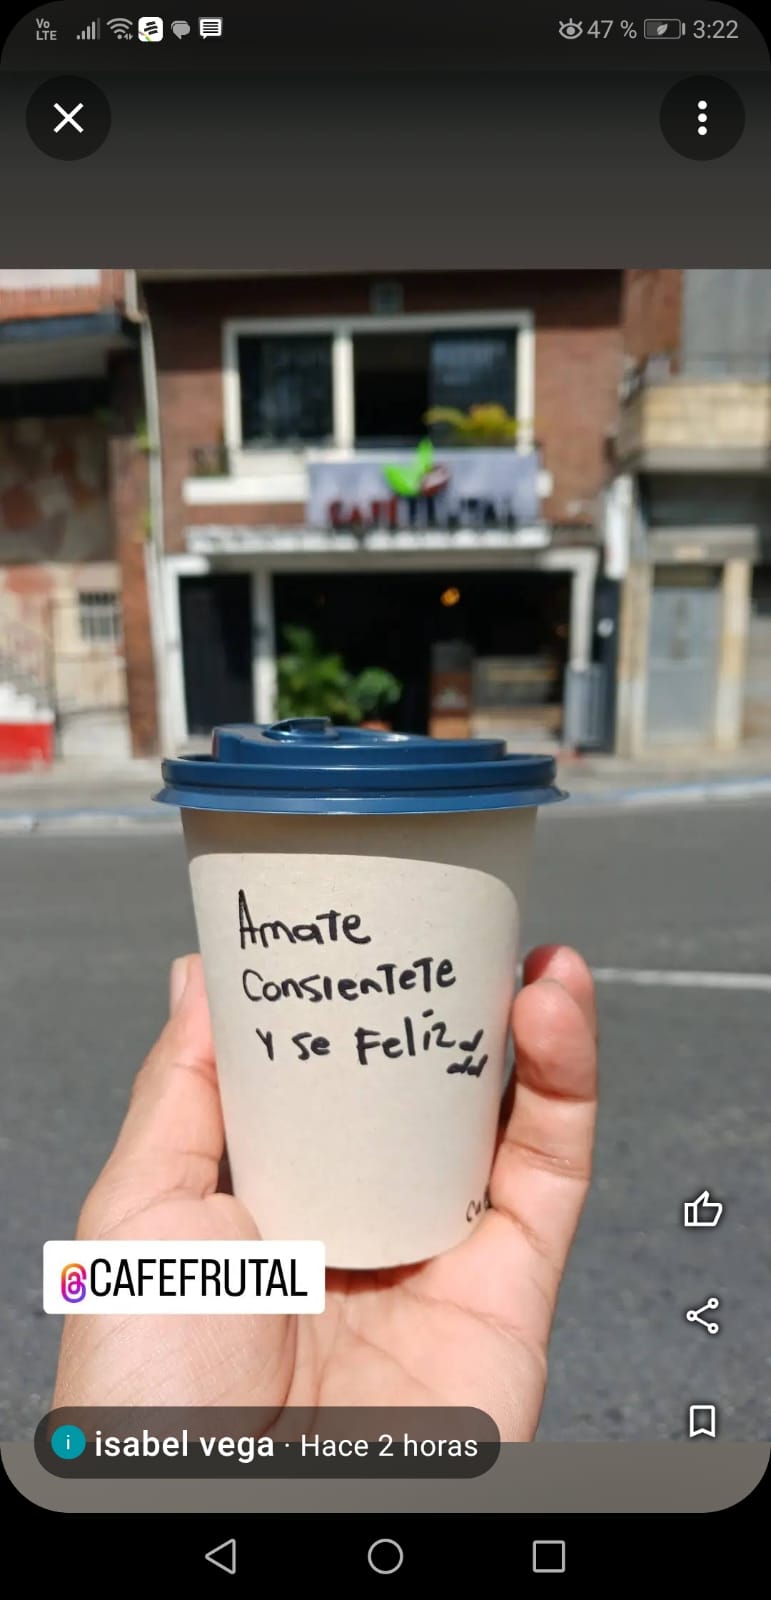 Vo
LTE
47 %
3:22
CAFÉ FRUTAL
Amate
Consientete
Y se Feliz
@CAFEFRUTAL
i isabel vega · Hace 2 horas